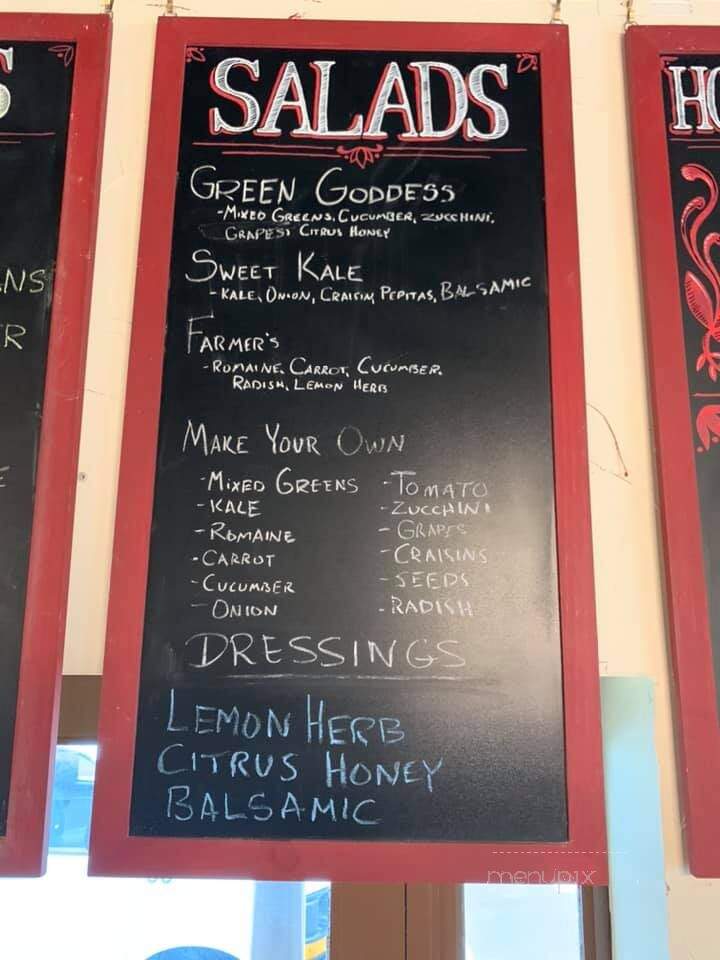 S
SALADS
HO
GREEN GODDESS
-MIXED GREENS, CUCUMBER, ZUCCHINI,
GRAPES, CITRUS HONEY
SWEET KALE
-KALE, ONION, CRAISIN, PEPITAS, BALSAMIC
ANS
R
FARMER'S
-ROMAINE, CARROT, CUCUMBER,
RADISH, LEMON HERB
MAKE YOUR OWN
-MIXED GREENS
-KALE
-ROMAINE
-CARROT
-CUCUMBER
-ONION
-TOMATO
-ZUCCHINI
-GRAPES
-CRAISINS
-SEEDS
-RADISH
E
DRESSINGS
LEMON HERB
CITRUS HONEY
BALSAMIC
menupix